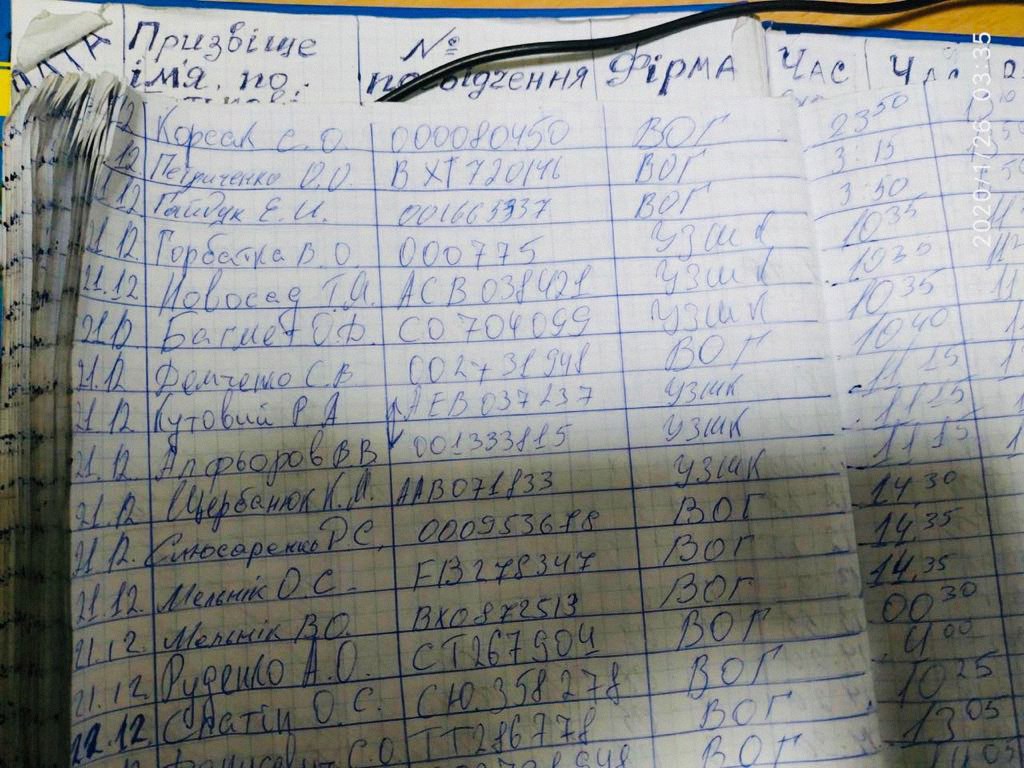 ДАТА Призвіще № ФІрмА ЧАС
ім'я, по. посвідчення
12 Корсак С.О. 000080450 ВОГ 23 50
12 Петриченко О.О. ВХТ720146 ВОГ 3:15
12 Гайдук Е.И. 001665337 ВОГ 3:50
21.12 Горбатка В.О 000775 УЗШК 10 35
21.12 Новосад Т.Я. АСВ038421 УЗШК 10 35
21.12 Багмет О.Ф. СО704099 УЗШК 10 35
21.12 Демченко С.В 002731948 ВОГ 10 40
21.12 Кутовий Р.А АЕВ037237 УЗШК 11 25
21.12 Алфьоров В В 001333815 УЗШК 11 25
21.12 Щербанюк К.М. ААВ071833 УЗШК 11 15
21.12. Слюсаренко Р С. 000953688 ВОГ 14 30
21.12 Мельнік О.С. ЕВ278347 ВОГ 14.35
21.12 Мельнік В.О. ВХ0872513 ВОГ 14.35
21.12 Руденко А.О. СТ267904 ВОГ 00 30
22.12. О.С. СЮ.358278 ВОГ 4 00
С.О. ТТ286778 ВОГ 10 25
ВОГ 13 05
2020/1/26 03:35